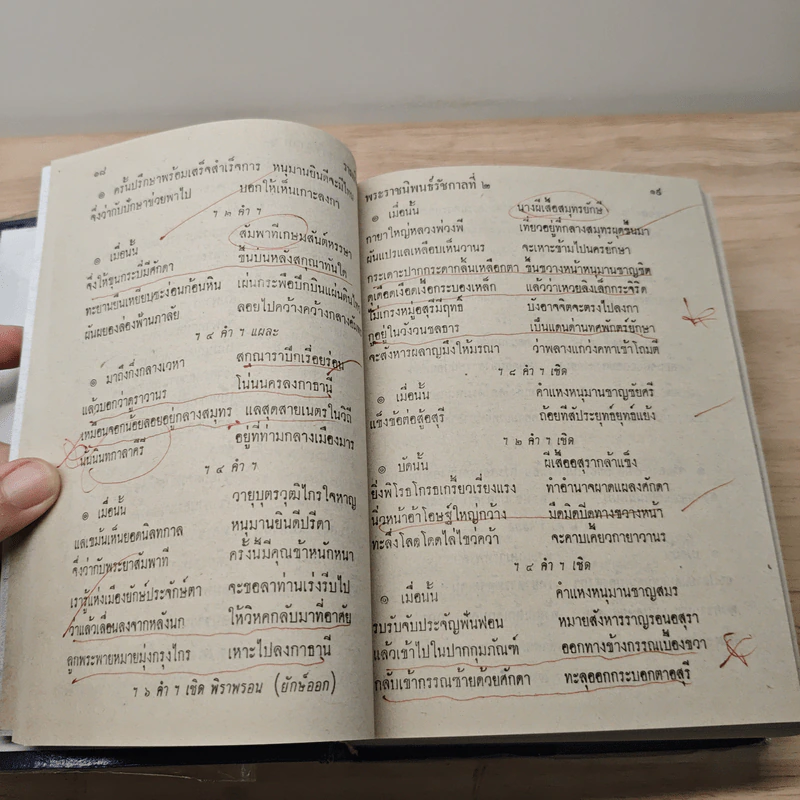 ๑๘
๑ ครั้นปรึกษาพร้อมเสร็จสำเร็จการ หนุมานยินดีจะมีไหน
จึ่งว่ากับปักษาช่วยพาไป บอกให้เห็นเกาะลงกา
ฯ ๖ คำ ฯ
๑ เมื่อนั้น สัมพาทีเกษมสันต์หรรษา
จึ่งให้ขุนกระบี่มีศักดา ขึ้นบนหลังสกุณาทันใด
ทะยานยืนเหยียบชะง่อนก้อนหิน เผ่นกระพือปีกบินแผ่นดินไหว
ผันผยองล่องฟ้านภาลัย ลอยไปคว้างคว้างกลาง
ฯ ๔ คำ ฯ แผละ
๑ มาถึงกึ่งกลางเวหา สกุณาราปีกเรื่อยร่อน
แล้วบอกว่าดูราวานร โน่นนครลงกาธานี
เหมือนจอกน้อยลอยอยู่กลางสมุทร แลสุดสายเนตรในวิถี
นั่นนินทกาลาคีรี อยู่ที่ท่ามกลางเมืองมาร
ฯ ๔ คำ ฯ
๑ เมื่อนั้น วายุบุตรวุฒิไกรใจหาญ
แลเขม้นเห็นยอดนิลทกาล หนุมานยินดีปรีดา
จึ่งว่ากับพระยาสัมพาที ครั้งนี้มีคุณข้าหนักหนา
เรารู้แห่งเมืองยักษ์ประจักษ์ตา จะขอลาท่านเร่งรีบไป
ว่าแล้วเลื่อนลงจากหลังนก ให้วิหคกลับมาที่อาศัย
ลูกพระพายหมายมุ่งกรุงไกร เหาะไปลงกาธานี
ฯ ๖ คำ ฯ เชิด พิราพรอน (ยักษ์ออก)
พระราชนิพนธ์รัชกาลที่ ๒ ๑๙
๑ เมื่อนั้น นางผีเสื้อสมุทรยักษี
กายาใหญ่หลวงพ่วงพี เที่ยวอยู่ที่กลางสมุทรผุดขึ้นมา
ผันแปรแลเหลือบเห็นวานร จะเหาะข้ามไปนครยักษา
กระเดาะปากกระดากลิ้นเหลือกตา ขึ้นขวางหน้าหนุมานชาญชิด
ดูเดือดเงือดเงื้อกระบองเหล็ก แล้วว่าเหวยลิงเล็กกระจิริด
ไม่เกรงหมู่อสุรีมีฤทธิ์ บังอาจจิตจะตรงไปลงกา
กูอยู่ในวังวนชลธาร เป็นแดนด่านทศพักตร์ยักษา
จะสังหารผลาญมึงให้มรณา ว่าพลางแกว่งคทาเข้าโถมตี
ฯ ๘ คำ ฯ เชิด
๑ เมื่อนั้น คำแหงหนุมานชาญชัยศรี
แข็งข้อต่อสู้อสุรี ถ้อยทีสัประยุทธ์ยุทธ์แย้ง
ฯ ๒ คำ ฯ เชิด
๑ บัดนั้น ผีเสื้ออสุรากล้าแข็ง
ยิ่งพิโรธโกรธเกรี้ยวเรี่ยวแรง ทำอำนาจผาดแผลงศักดา
นิ่วหน้าอ้าโอษฐ์ใหญ่กว้าง มืดมิดปิดทางขวางหน้า
ทะลึ่งโลดโดดไล่ไขว่คว้า จะคาบเคี้ยวกายาวานร
ฯ ๔ คำ ฯ เชิด
๑ เมื่อนั้น คำแหงหนุมานชาญสมร
รบรับจับประจัญฟันฟอน หมายสังหารราญรอนอสุรา
แล้วเข้าไปในปากกุมภัณฑ์ ออกทางช้างกรรณเบื้องขวา
กลับเข้ากรรณซ้ายด้วยศักดา ทะลุออกกระบอกตาอสุรี